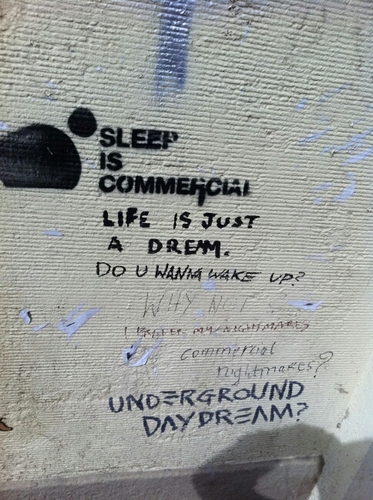 SLEEP
IS
COMMERCIAL
LIFE IS JUST
A DREAM.
DO U WANNA WAKE UP?
WHY NOT
I PREFER MY NIGHTMARES
commercial
nightmares?
UNDERGROUND
DAYDREAM?